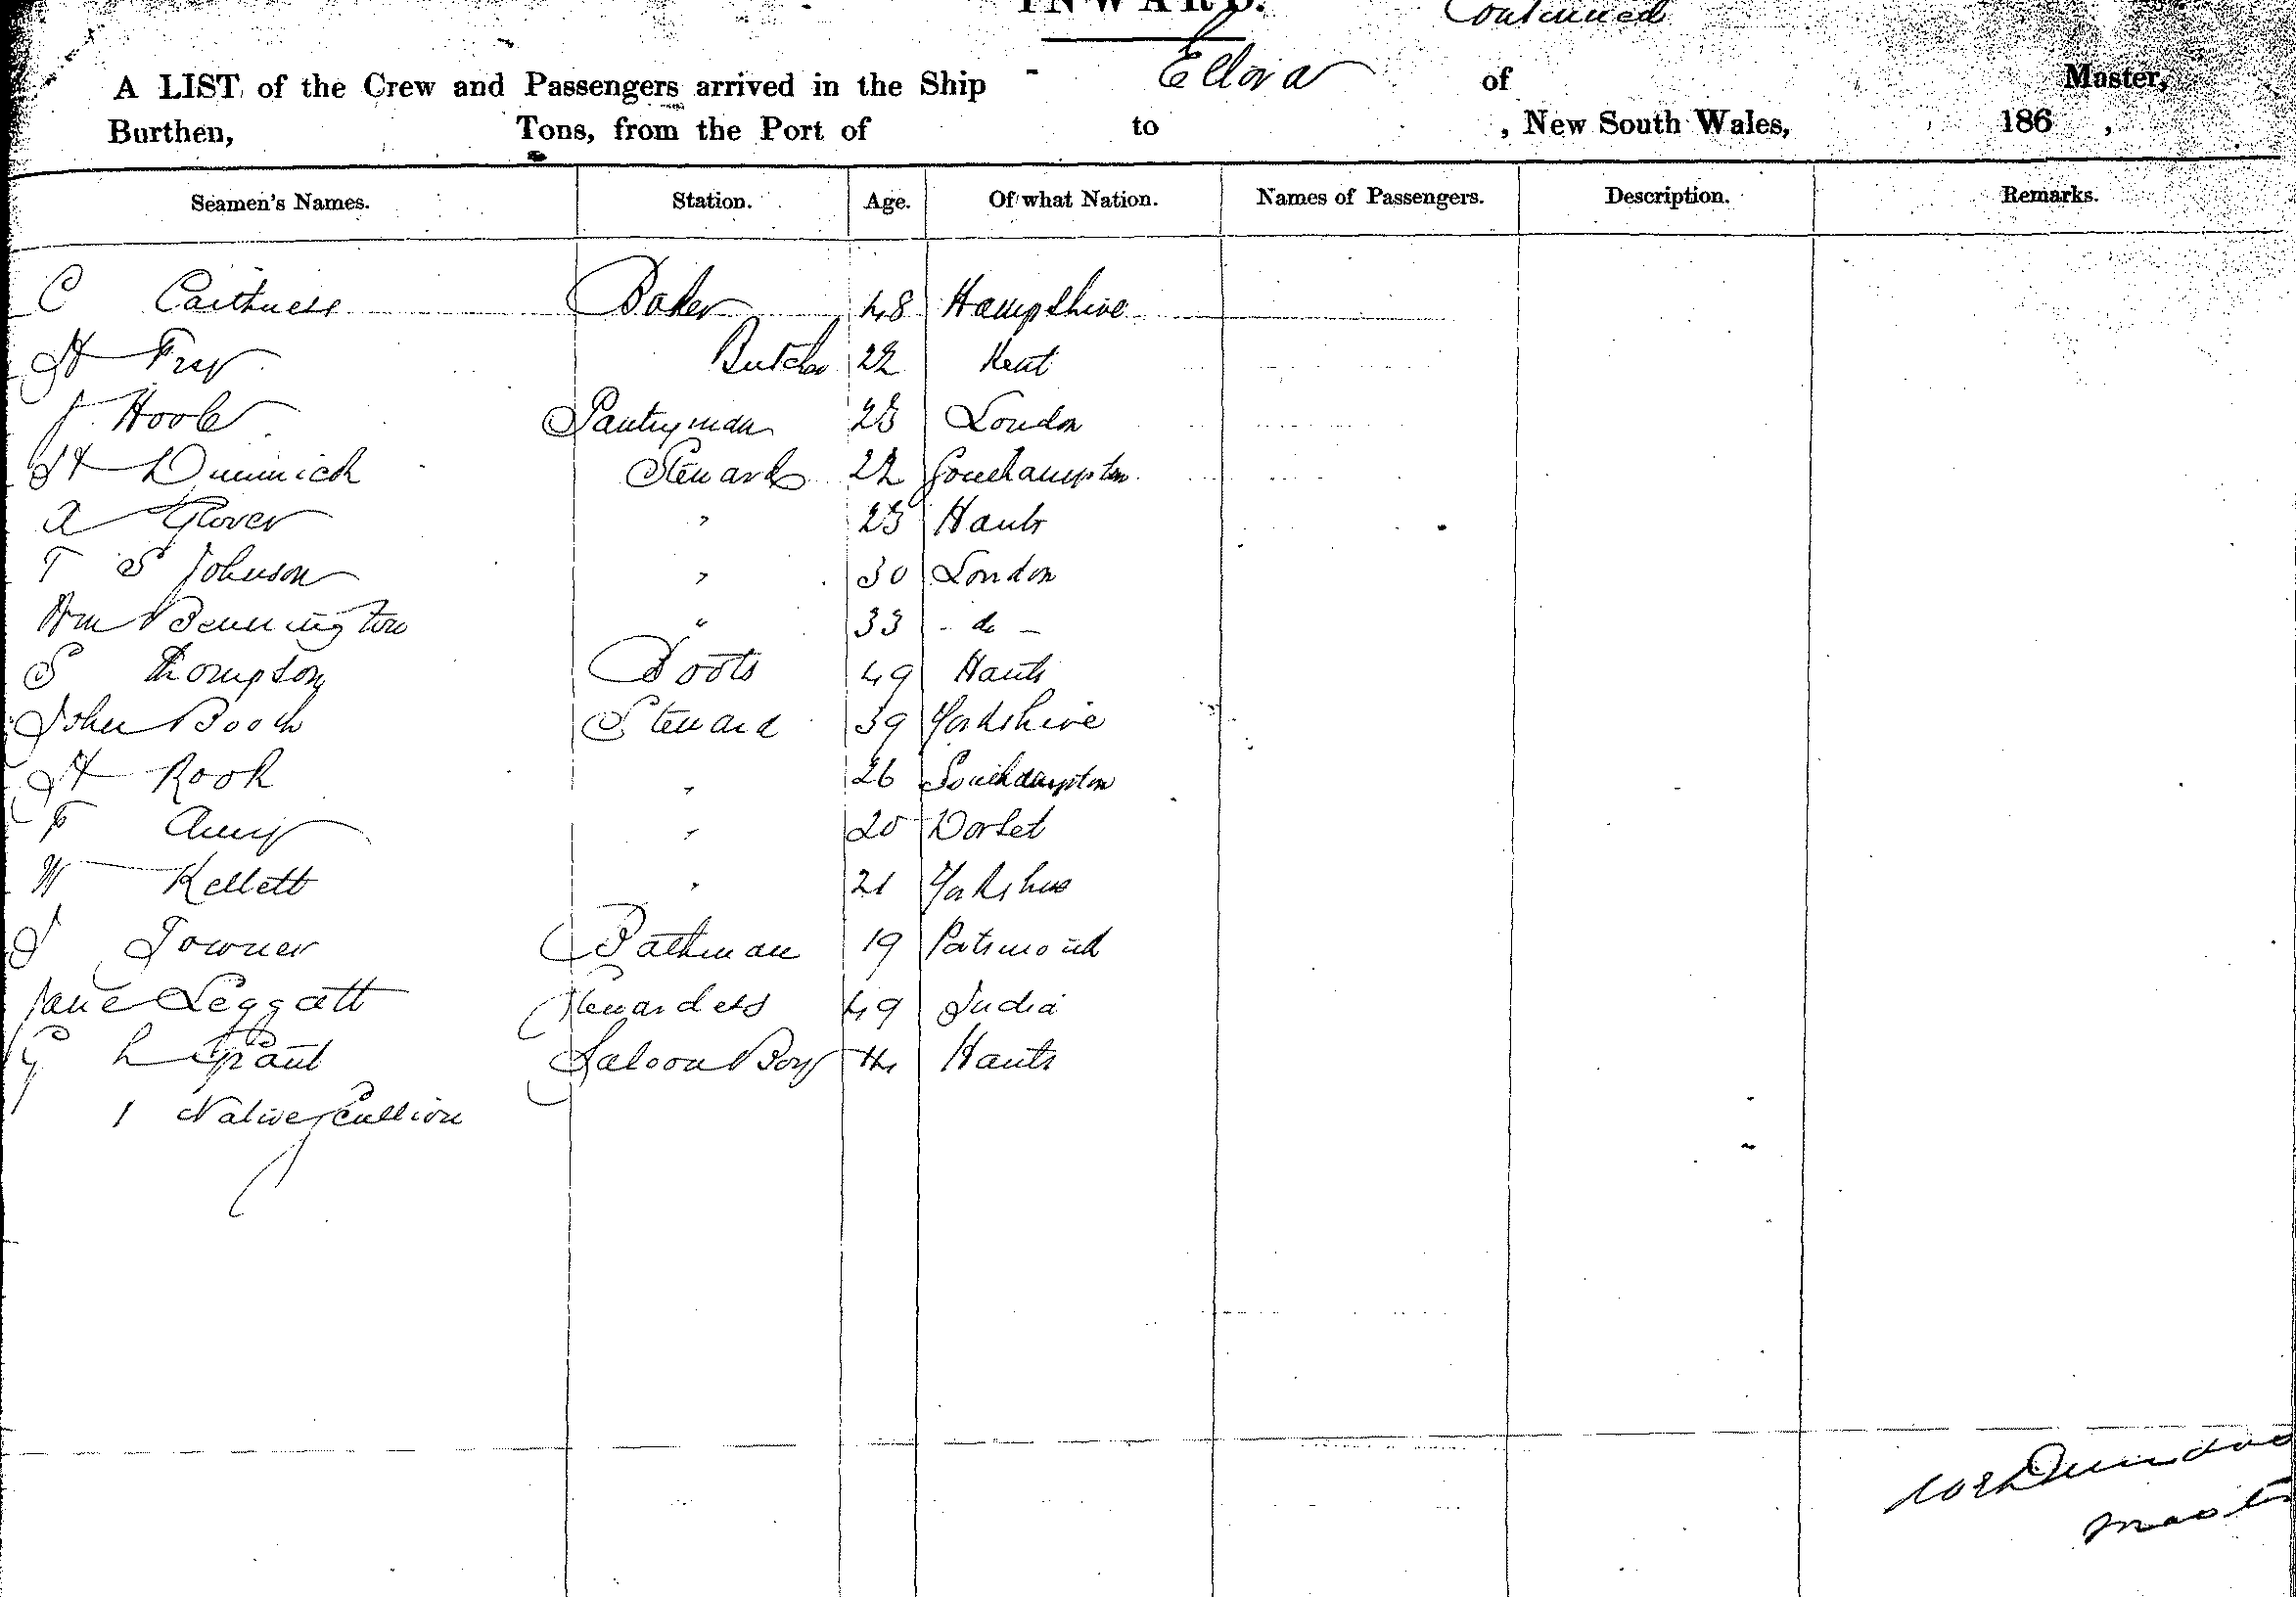 INWARD. Continued
A LIST of the Crew and Passengers arrived in the Ship Ellora of Master,
Burthen, Tons, from the Port of to , New South Wales, 186 ,
Seamen's Names. Station. Age. Of what Nation. Names of Passengers. Description. Remarks.
C Caithness Baker 48 Hampshire
H Fry Butcher 22 Kent
J Hoole Pantryman 23 London
H Dimmick Steward 22 Southampton
A Glover " 23 Hants
T S Johnson " 30 London
Wm Bennington " 33 - do -
S Thompson Boots 49 Hants
John Booth Steward 39 Yorkshire
H Rook " 26 Southampton
F Amy " 20 Dorset
W Kellett " 21 Yorkshire
J Towner Bathman 19 Portsmouth
Jane Leggatt Stewardess 49 India
G L Grant Saloon Boy 14 Hants
1 Native Scullion
Master